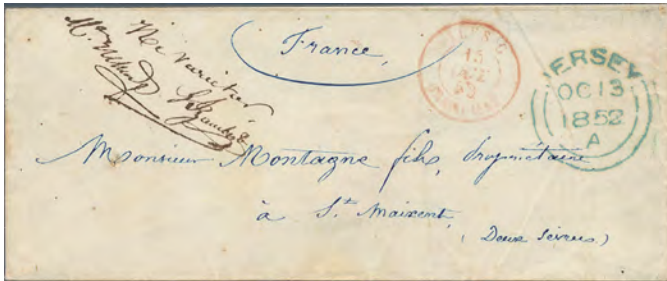 Ne varietur
France
15
JERSEY
OC 13
1852
A
Monsieur Montagne fils, propriétaire
à St. Maixent,
(Deux Sèvres.)